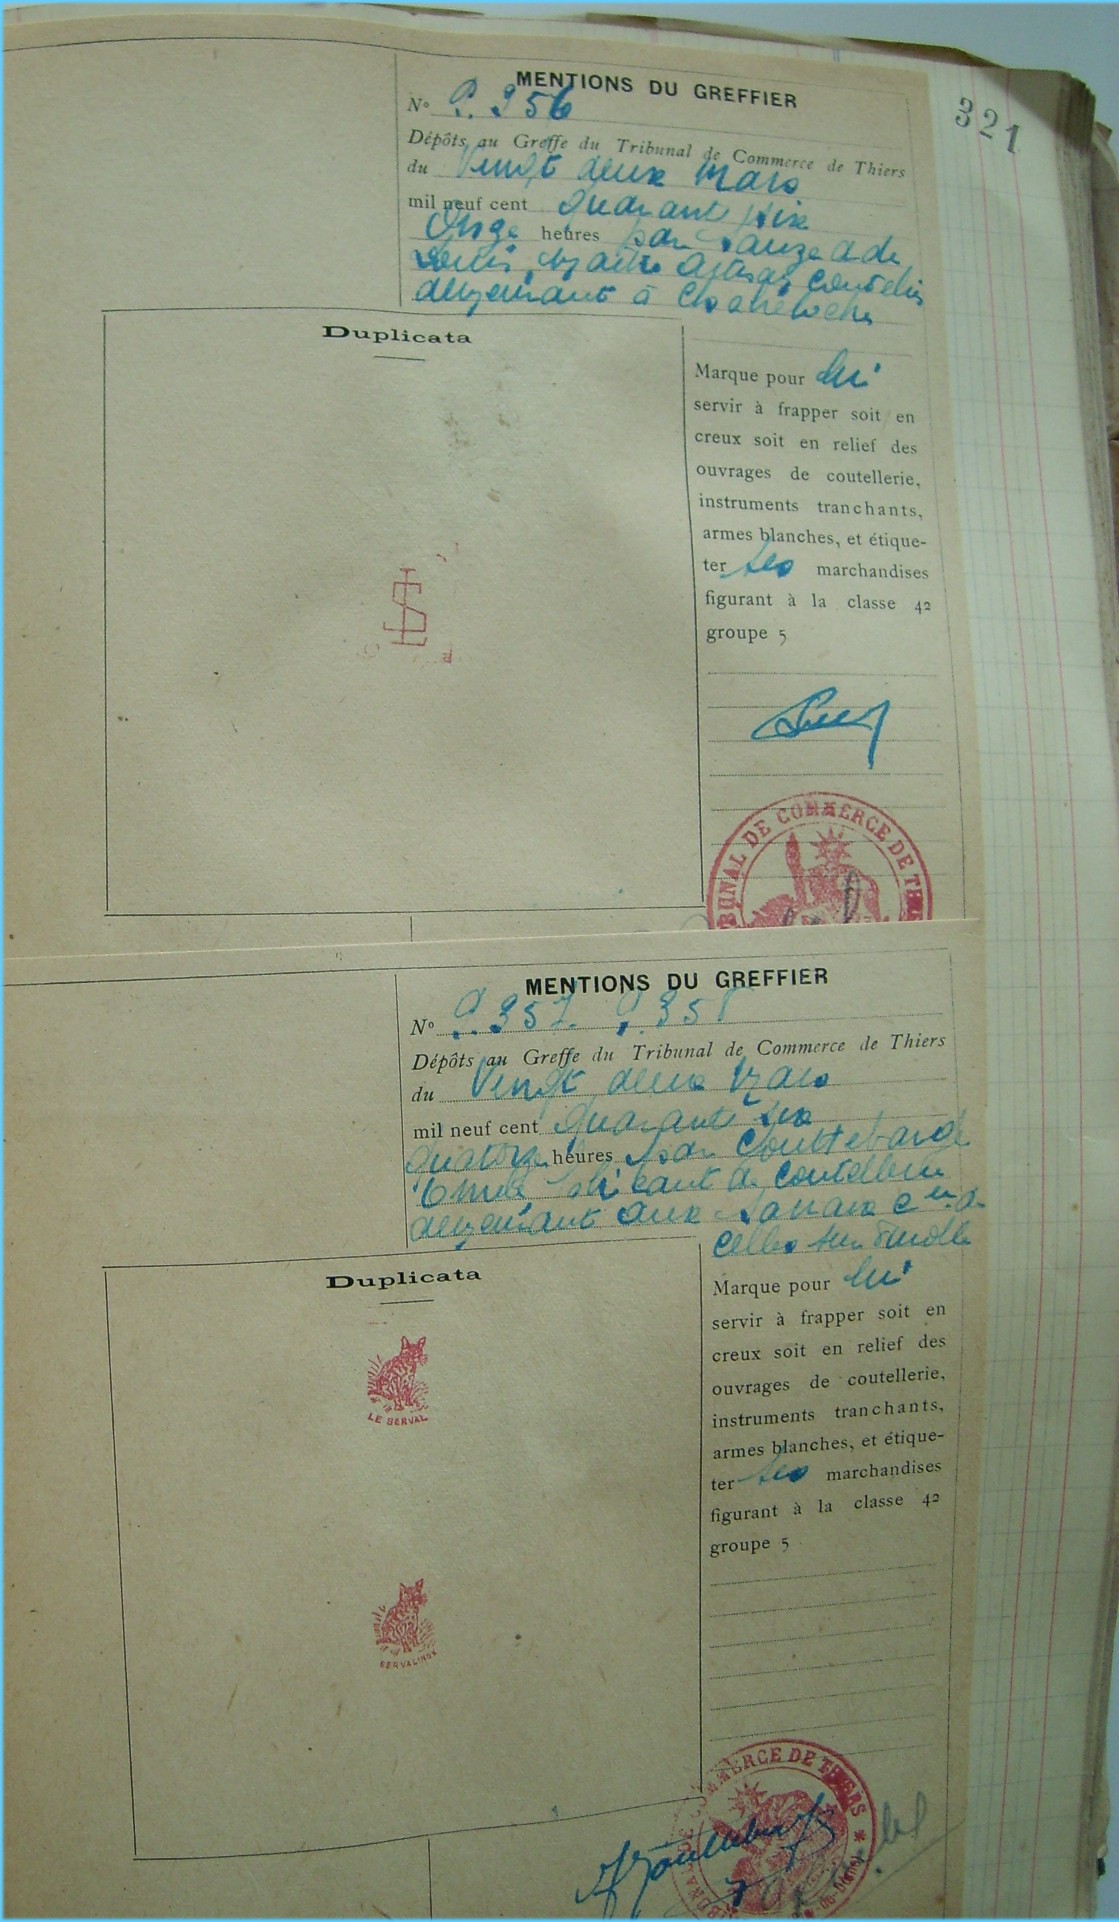 321
MENTIONS DU GREFFIER
N° P. 356
Dépôts au Greffe du Tribunal de Commerce de Thiers
du Vingt deux Mars
mil neuf cent quarante six
Onze heures par Sauzedde
Louis, Maître Artisan Coutelier
demeurant à
Duplicata
Marque pour lui
servir à frapper soit en
creux soit en relief des
ouvrages de coutellerie,
instruments tranchants,
armes blanches, et étique-
ter ses marchandises
figurant à la classe 42
groupe 5
SL
TRIBUNAL DE COMMERCE DE
MENTIONS DU GREFFIER
N° P. 357. P. 358
Dépôts au Greffe du Tribunal de Commerce de Thiers
du Vingt deux Mars
mil neuf cent quarante six
quatorze heures par Couttebarge
fabricant de coutellerie
demeurant aux Sarraix Cne de
Celles sur Durolle
Duplicata
Marque pour lui
servir à frapper soit en
creux soit en relief des
ouvrages de coutellerie,
instruments tranchants,
armes blanches, et étique-
ter ses marchandises
figurant à la classe 42
groupe 5
LE SERVAL
SERVALINOX
COMMERCE DE THIERS